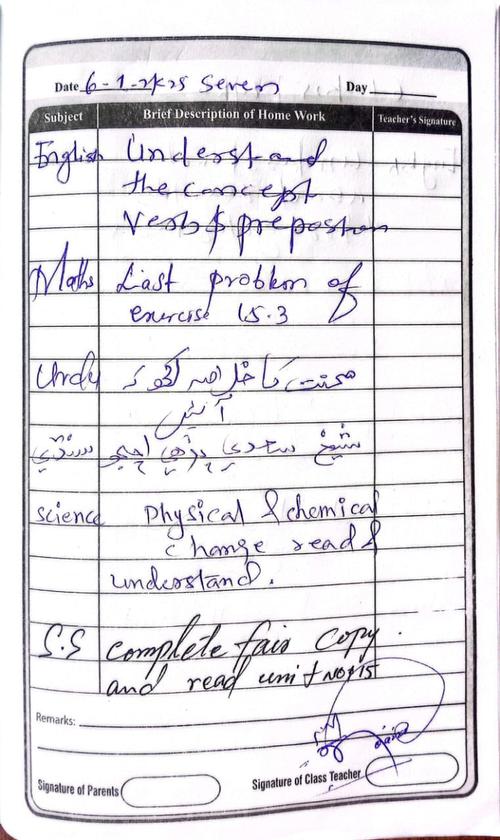 Date 6-1-2k25 Seven Day
Subject Brief Description of Home Work Teacher's Signature
English Understand
the concept
Verb & prepostion
Maths Last problem of
exercise 15.3
Urdu محنت کا خلاصہ لکھ کر
آئیں
سنڌي شيخ سعدي پڙهي اچجو
Science Physical & chemical
change read &
understand.
S.S complete fair copy.
and read unit No#15
Remarks:
Signature of Parents Signature of Class Teacher